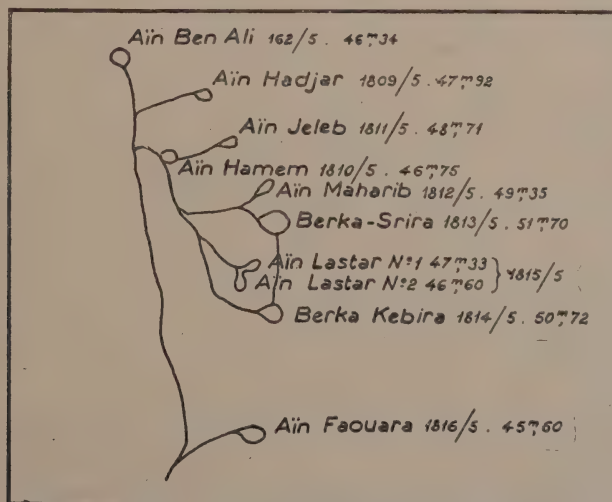 Aïn Ben Ali 162/5 . 46ᵐ,34
Aïn Hadjar 1809/5 . 47ᵐ,92
Aïn Jeleb 1811/5 . 48ᵐ,71
Aïn Hamem 1810/5 . 46ᵐ,75
Aïn Maharib 1812/5 . 49ᵐ,35
Berka-Srira 1813/5 . 51ᵐ,70
Aïn Lastar Nº1 47ᵐ,33
Aïn Lastar Nº2 46ᵐ,60 } 1815/5
Berka Kebira 1814/5 . 50ᵐ,72
Aïn Faouara 1816/5 . 45ᵐ,60